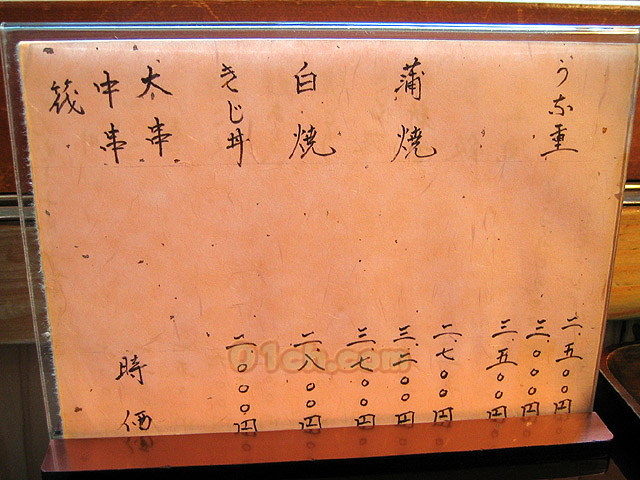 うな重 二、五〇〇円
三、〇〇〇円
三、五〇〇円
蒲焼 二、七〇〇円
三、二〇〇円
三、七〇〇円
白焼 二、八〇〇円
きじ丼 二、〇〇〇円
大串
中串 時価
筏
01ch.com